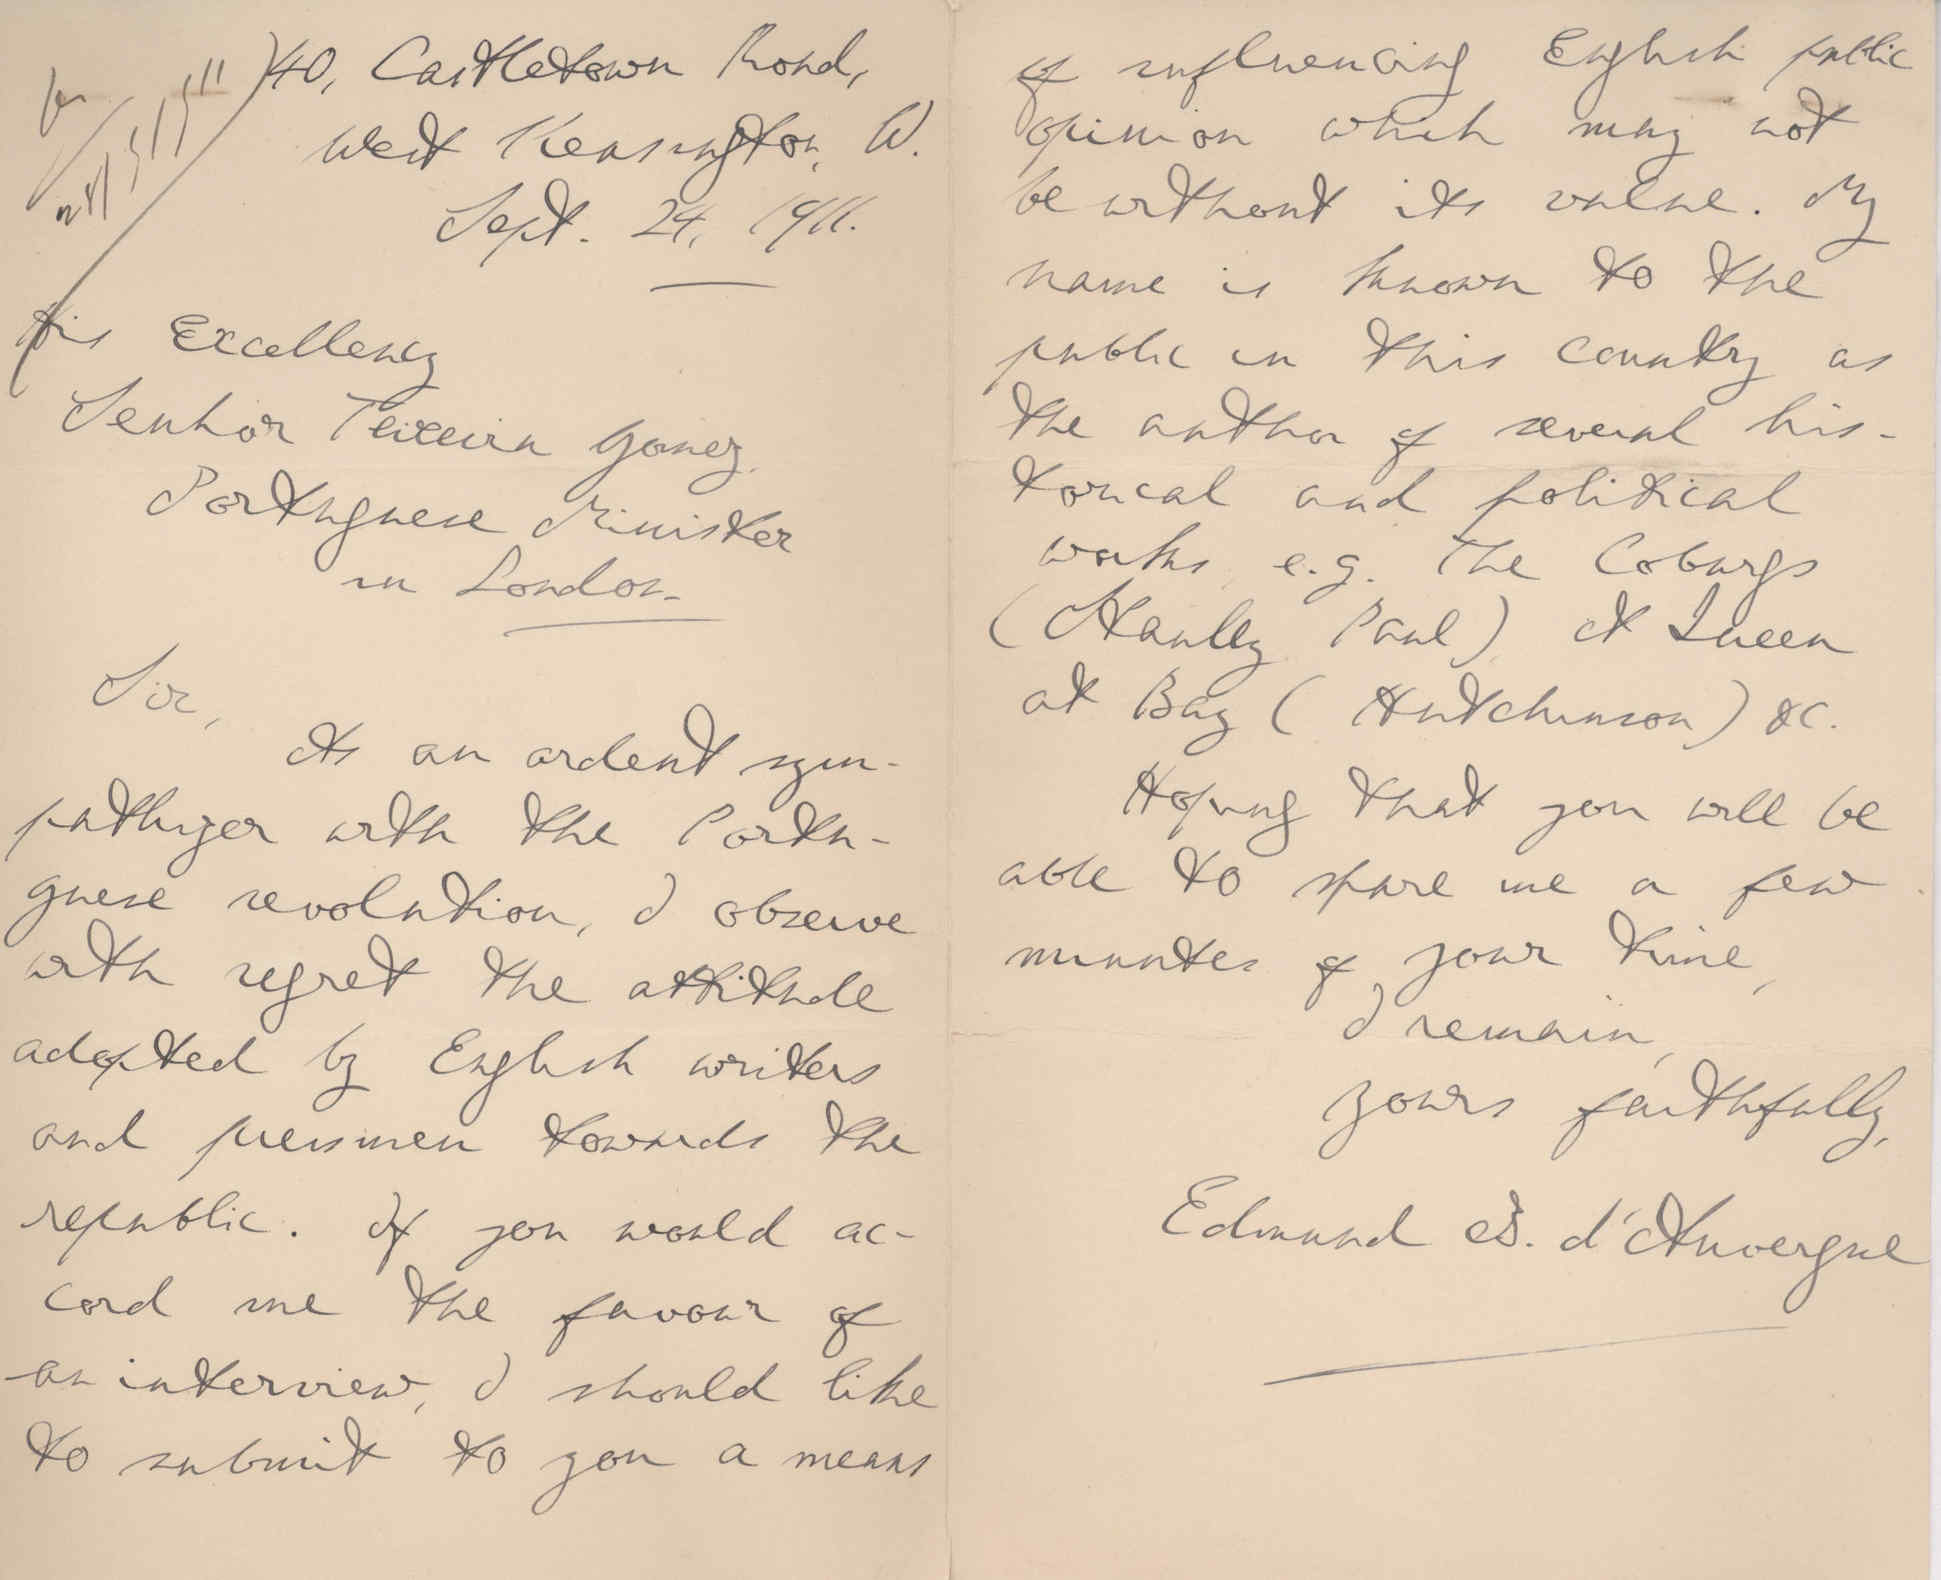 40, Castletown Road,
West Kensington, W.
Sept. 24, 1911.
His Excellency
Senhor Teixeira Gomez,
Portuguese Minister
in London.
Sir,
As an ardent sym-
pathyzer with the Portu-
guese revolution, I observe
with regret the attitude
adopted by English writers
and pressmen towards the
republic. If you would ac-
cord me the favour of
an interview, I should like
to submit to you a means
of influencing English public
opinion which may not
be without its value. My
name is known to the
public in this country as
the author of several his-
torical and political
works, e.g. The Coburgs
(Stanley Paul), A Queen
at Bay (Hutchinson) &c.
Hoping that you will be
able to spare me a few
minutes of your time,
I remain,
Yours faithfully,
Edmund B. d'Auvergne